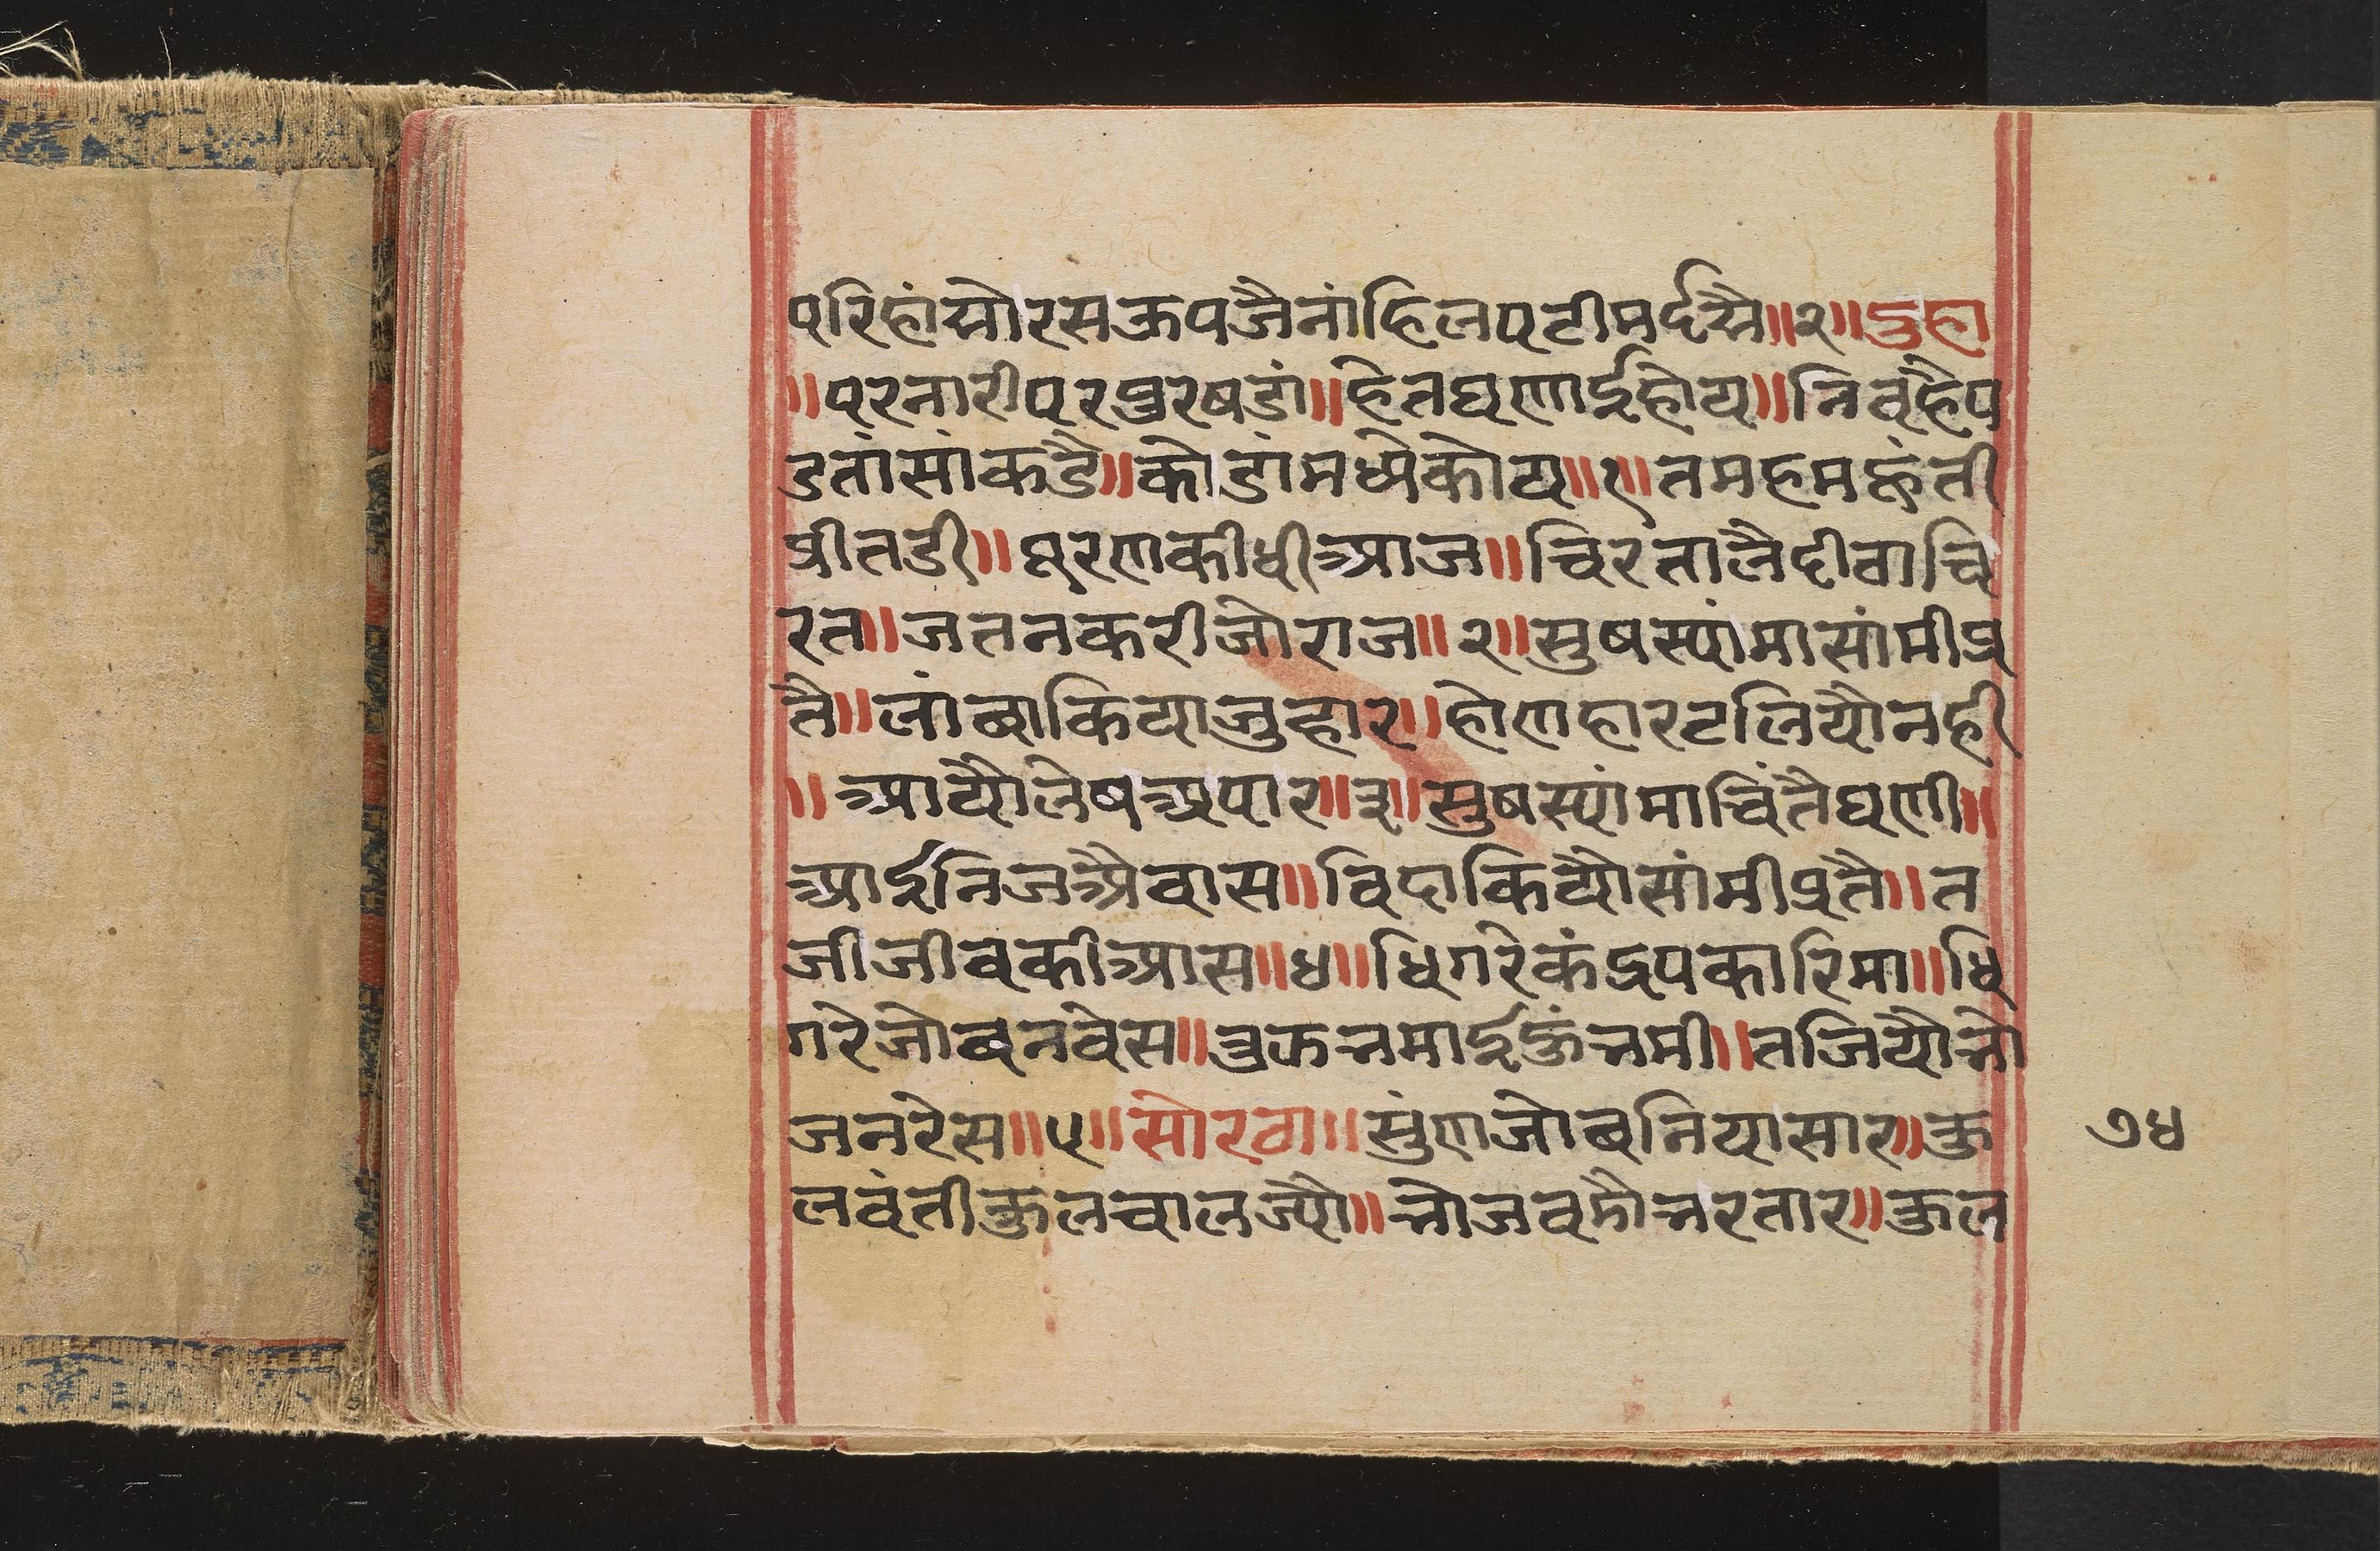 परिहांसोरसऊपजैनांहिलपटीमर्दसै॥२॥दुहा
॥परनारीपरपुरषडां॥हेतघणाईहोय॥निवहैप
डतांसांकडै॥कोडांमध्येकोय॥१॥तमहमछंती
प्रीतडी॥पूरणकीधीआज॥चिरंतालैदीवाचि
रत॥जतनकरीजोराज॥२॥सुषस्यांमासांमीप्र
तै॥लांबाकियाजुहार॥होणहारटलियौनही
॥आयौलेषअपार॥३॥सुषस्यांमाचिंतैघणी॥
आईनिजआवास॥विदाकियौसांमीप्रतै॥त
जीजीवकीआस॥४॥धिगरेकंद्रपकारिमा॥धि
गरेजोबनवेस॥उक्तनमाईकुंनमी॥तजियौभो
जनरेस॥५॥सोरठा॥सुंणजोबनियासार॥कु
लवंतीकुलचालज्यौ॥भोजवमौभरतार॥कुल
७४